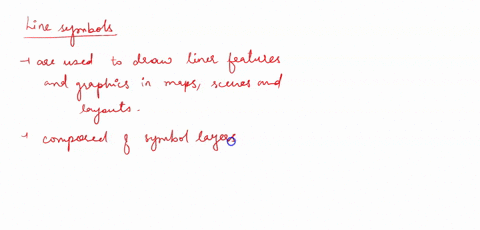 Line symbols
→ are used to draw liner features
and graphics in maps, scenes and
layouts.
→ composed of symbol layers